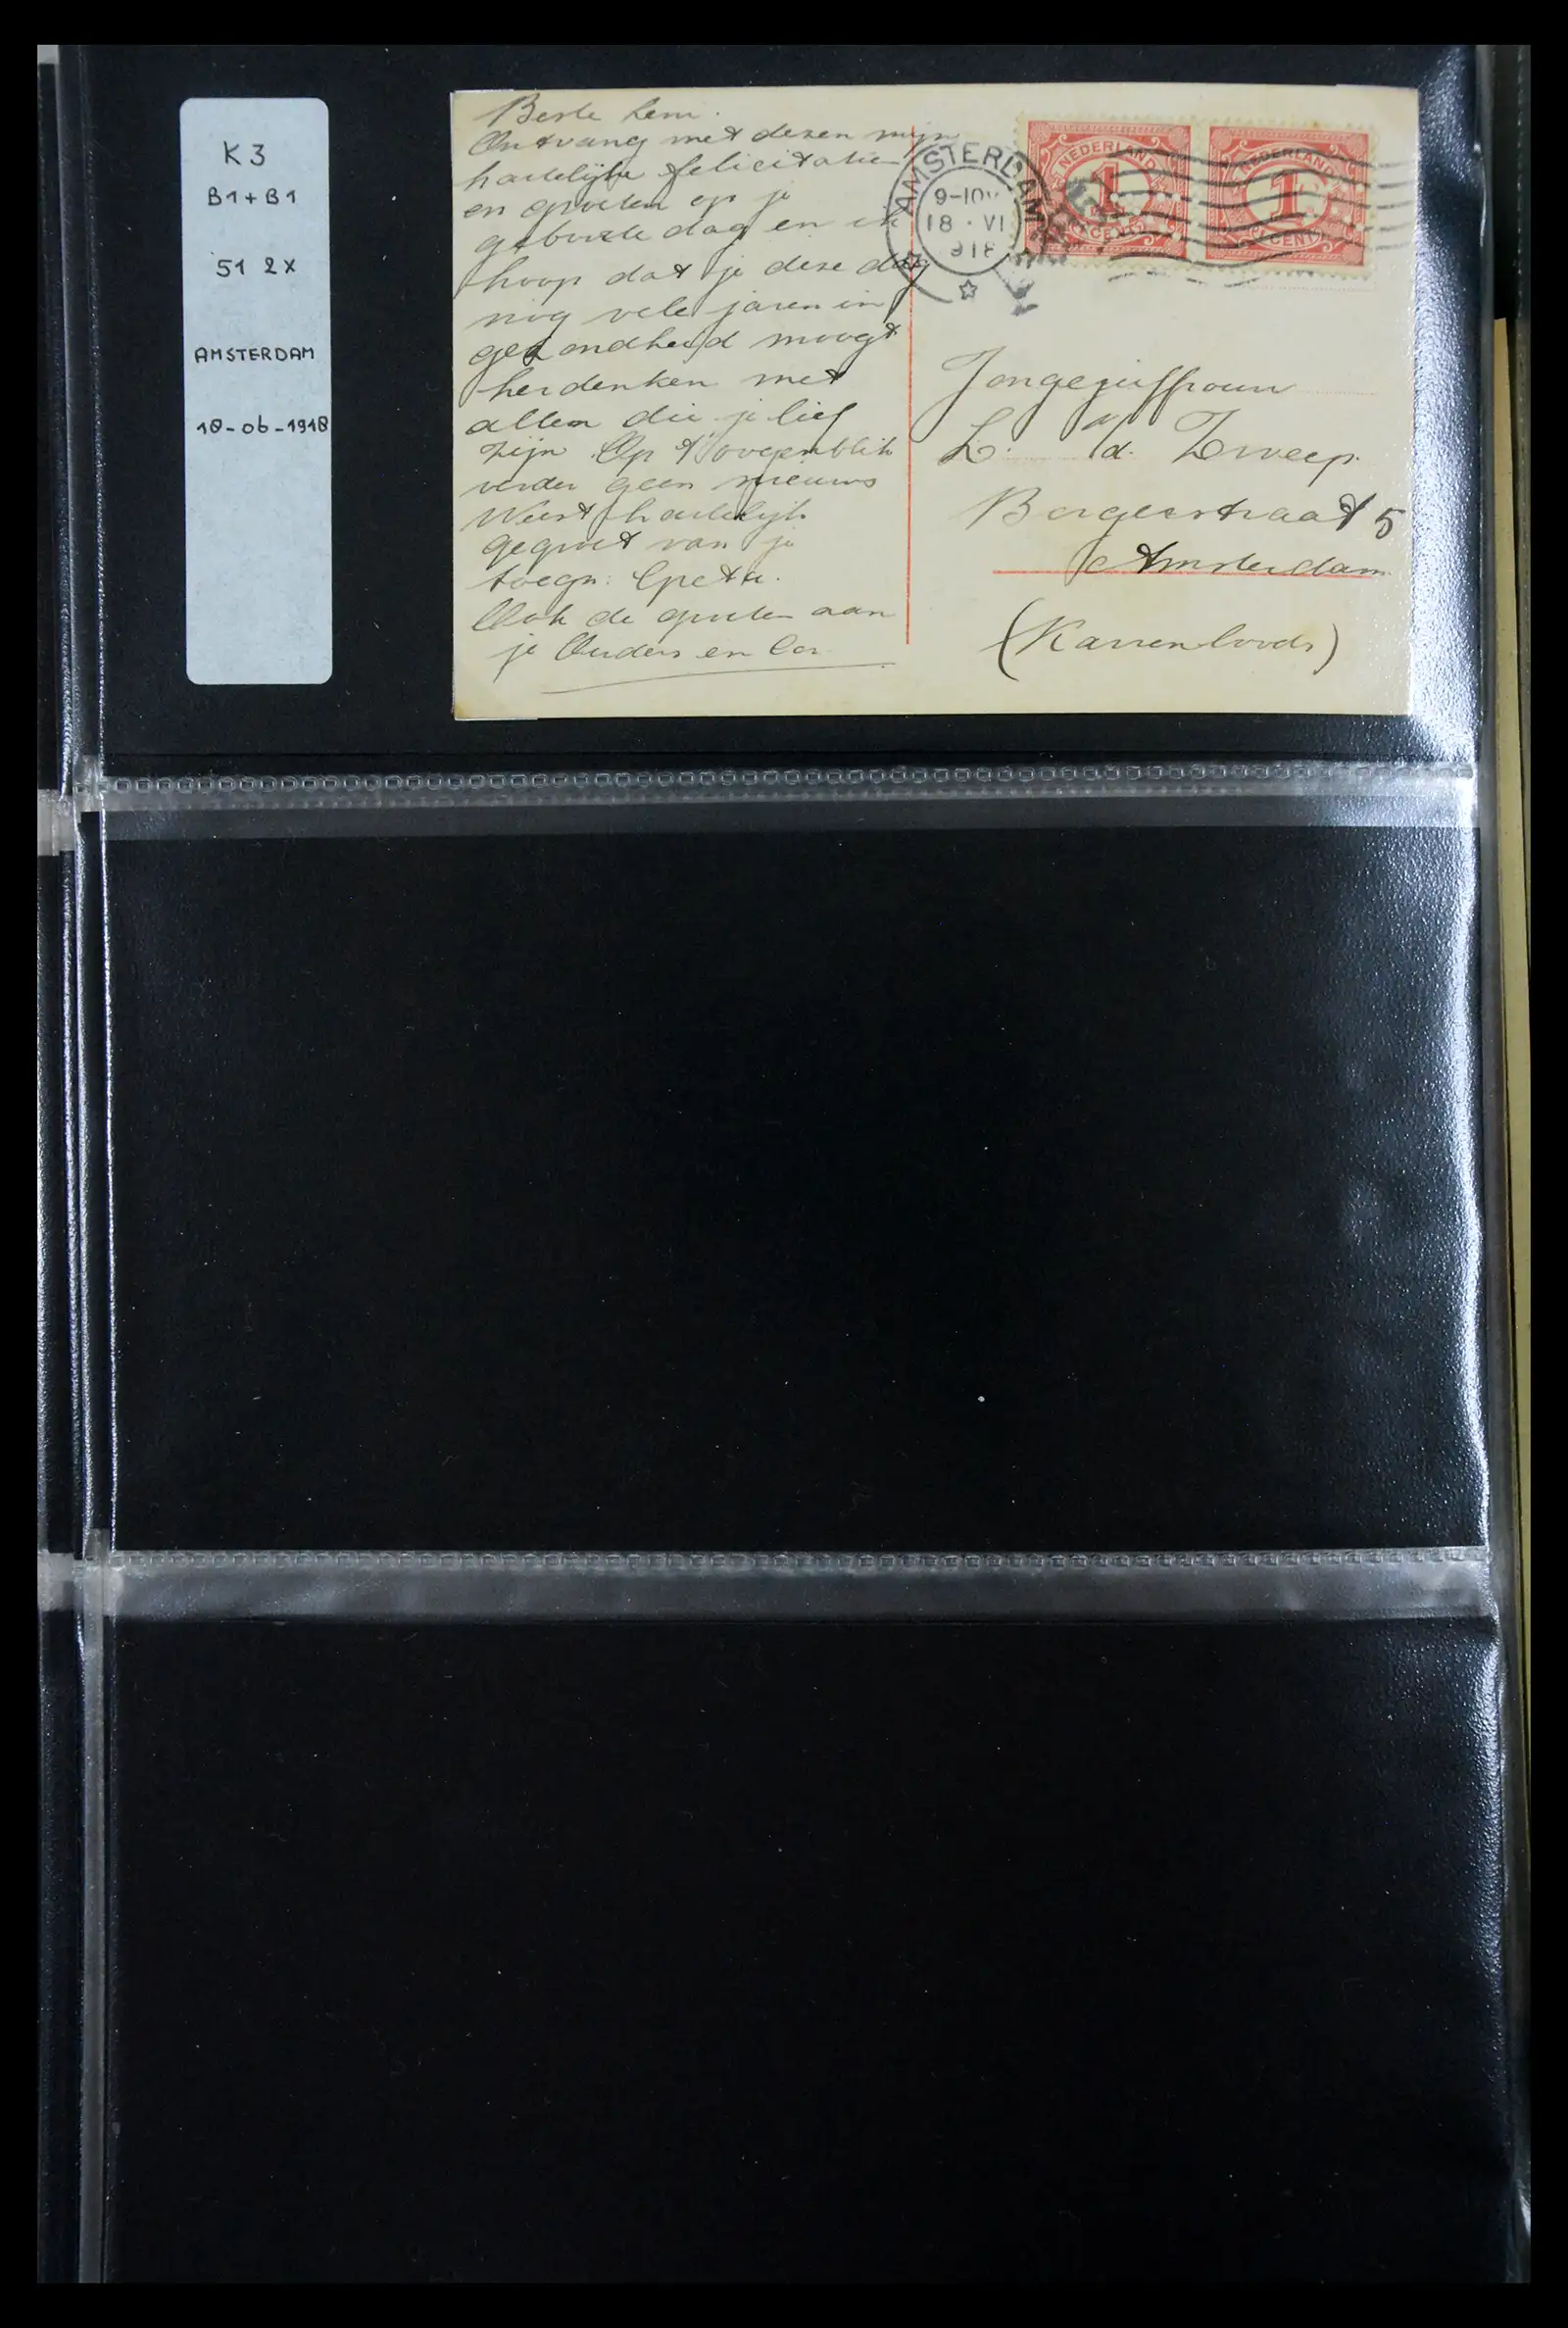 K3
B1+B1
51 2x
AMSTERDAM
18-06-1918
Beste
Ontvang met dezen mijn
hartelijke felicitatie
en groeten op je
geboorte dag en ik
hoop dat je deze dag
nog vele jaren in
gezondheid moogt
herdenken met
allen die je lief
zijn. Op 't oogenblik
verder geen nieuws
Weest hartelijk
gegroet van je
toegn:
Ook de groeten aan
je Ouders en Cor
AMSTERDAM
9-10V
18 · VI
918
NEDERLAND
1
CENT
NEDERLAND
1
CENT
Jongejuffrouw
L. v/d. Zweep.
straat 5
Amsterdam
(Karrenloods)